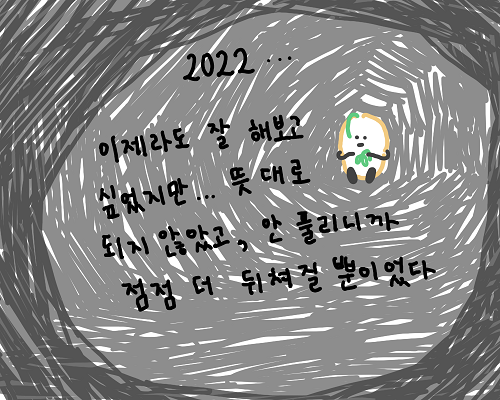 2022...
이제라도 잘 해보고
싶었지만... 뜻대로
되지 않았고, 안 풀리니까
점점 더 뒤쳐질 뿐이었다